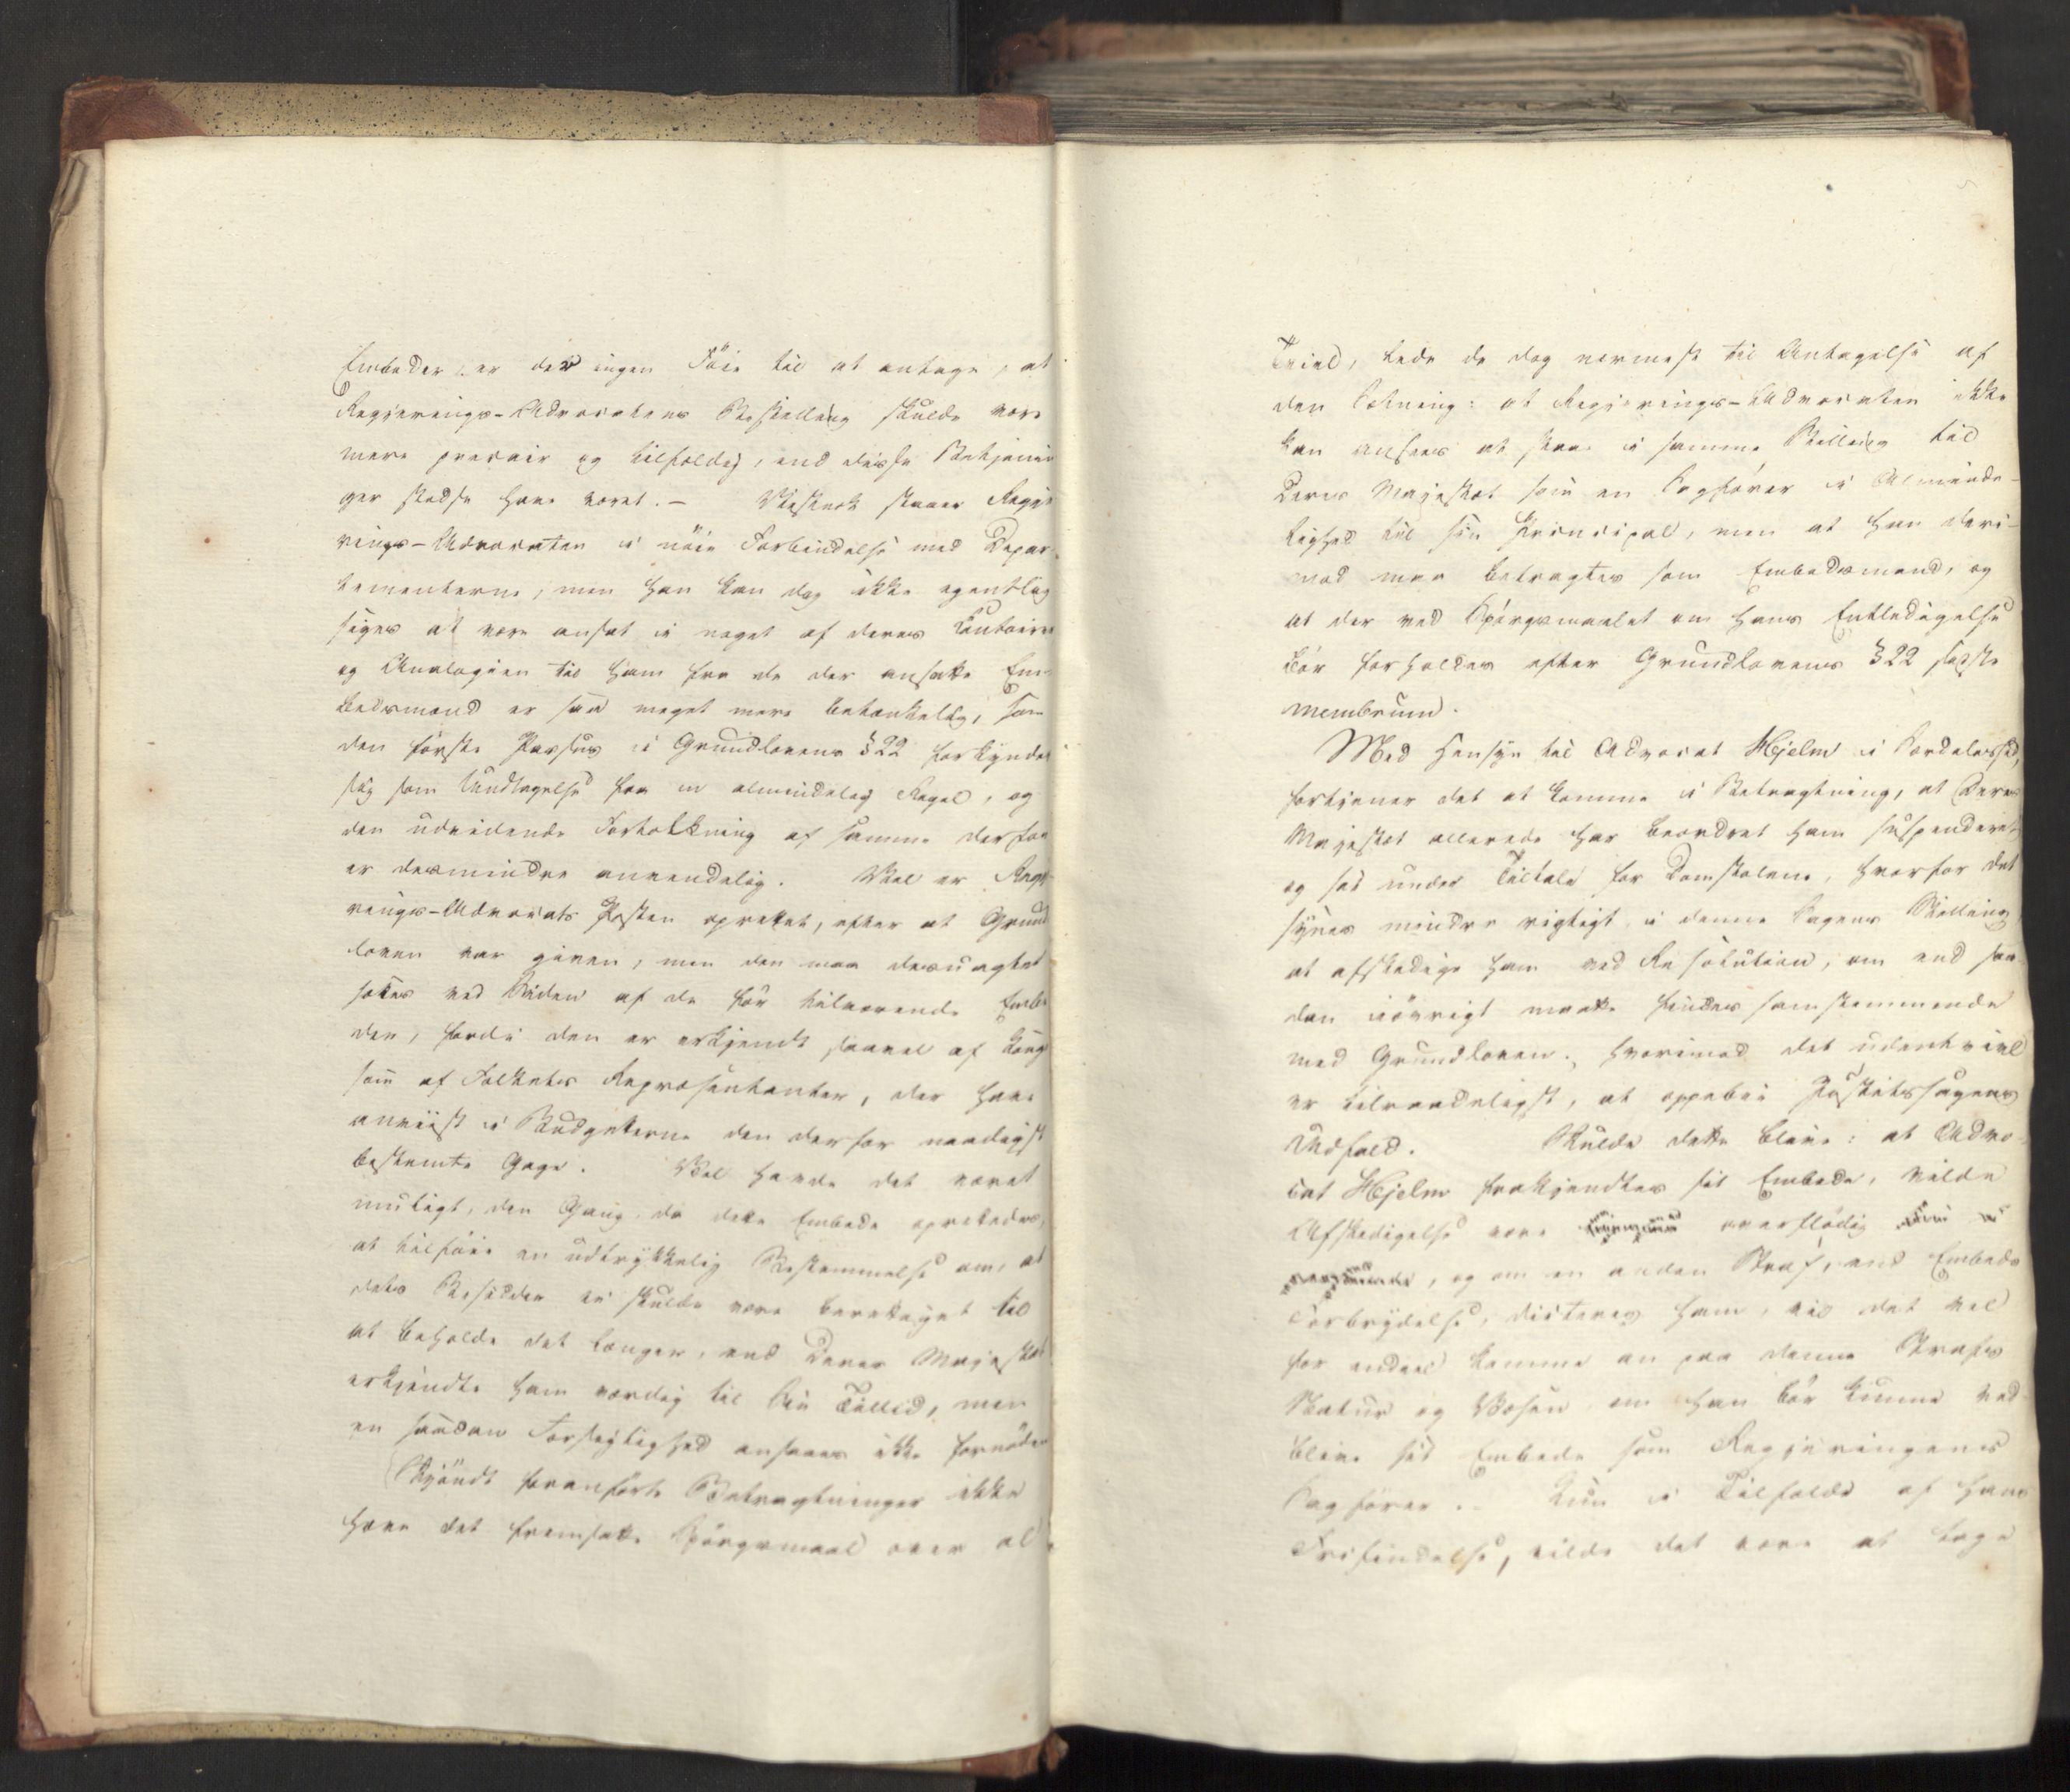 Embeder er der ingen Föie til at antage, at
Regjerings-Advocatens Bestilling skulde være
mere precair og tilfældig, end disse Betjenin
ger stedse have været. – Vistnok staaer Regje
rings-Advocaten i nöie Forbindelse med Depar-
tementerne, men han kan dog ikke egentlig
siges at være ansat i noget af deres Contoirer
og Analogien til ham fra de der ansatte Em-
bedsmænd er saa meget mere betænkelig, som
den förste Passus i Grundlovens § 22 forkynder
sig som Undtagelse fra en almindelig Regel, og
den udvidende Fortolkning af samme derfor
er desmindre anvendelig. Vel er Regje
rings-Advocats Posten oprettet, efter at Grund
loven var given, men den maa desuagtet
sættes ved Siden af de för tilværende Embe
der, fordi den er erkjendt saavel af Konge
som af Folkets Repræsentanter, der have
anviist i Budgetterne den derfor naadigst
bestemte Gage. Vel havde det været
muligt, den Gang da dette Embede oprettedes,
at tilföie en udtrykkelig Bestemmelse om, at
dets Besidder ei skulde være berettiget til
at beholde det længer, end Deres Majestæt
erkjendte ham værdig til Sin Tillid, men
en saadan Forsigtighed ansaaes ikke fornöden
Skjöndt foranförte Betragtninger ikke
hæve det fremsatte Spörgsmaal over al
Tvivl, lede de dog nærmest til Antagelse af
den Sætning: at Regjerings-Advocaten ikke
kan ansees at staae i samme Stilling til
Deres Majestæt som en Sagförer i Alminde-
lighed til sin Principal, men at han deri-
mod maa betragtes som Embedsmand, og
at der ved Spörgsmaalet om hans Entledigelse
bör forholdes efter Grundlovens § 22 sidste
membrum.
Med Hensyn til Advocat Hjelm i Særdeleshed,
fortjener det at komme i Betragtning, at Deres
Majestæt allerede har beordret ham suspenderet
og sat under Tiltale for Domstolene, hvorfor det
synes mindre rigtigt i denne Sagens Stilling,
at afskedige ham ved Resolution, om end saa
dan iövrigt maatte findes samstemmende
med Grundloven., hvorimod det udentvivl
er tilraadeligst, at oppebie Justitssagens
Udfald. Skulde dette blive: at Advo-
cat Hjelm frakjendtes sit Embede, vilde
Afskedigelse være overflödig
, og om en anden Straf, end Embeds
Forbrydelse, dicteres ham, vil det vel
for endeel komme an paa denne Strafs
Natur og Væsen om han bör kunne ved-
blive sit Embede som Regjeringens
Sagförer. – Kun i Tilfælde af hans
Frifindelse, vilde det være at tage